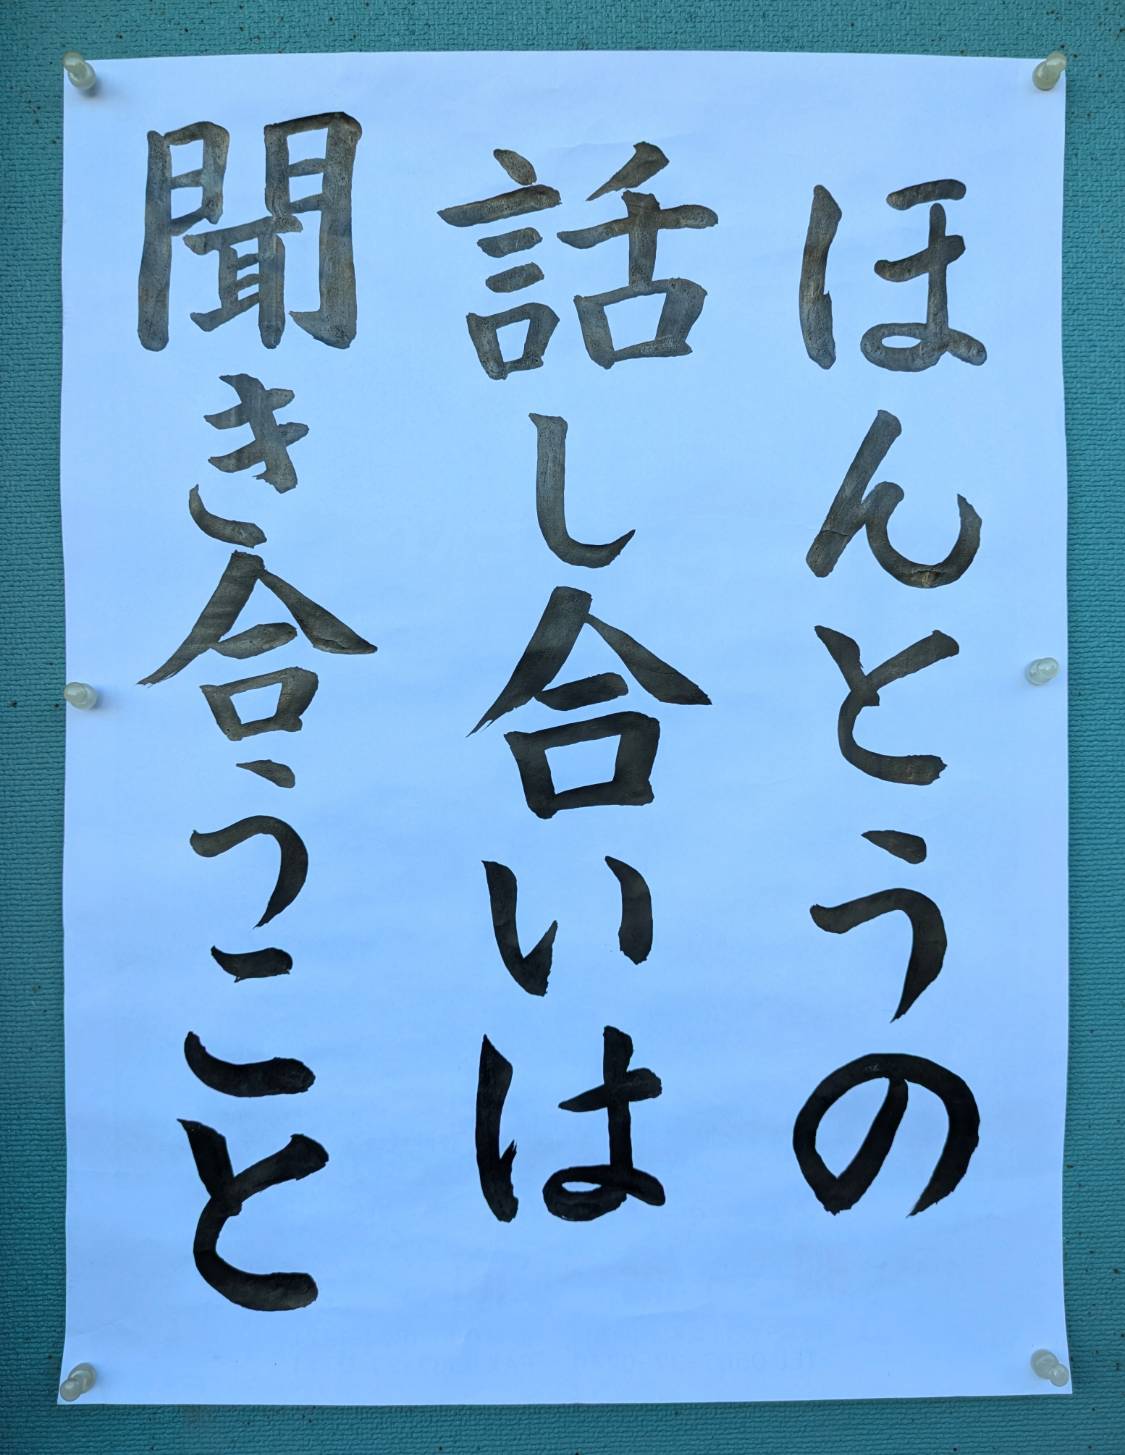 ほんとうの
話し合いは
聞き合うこと